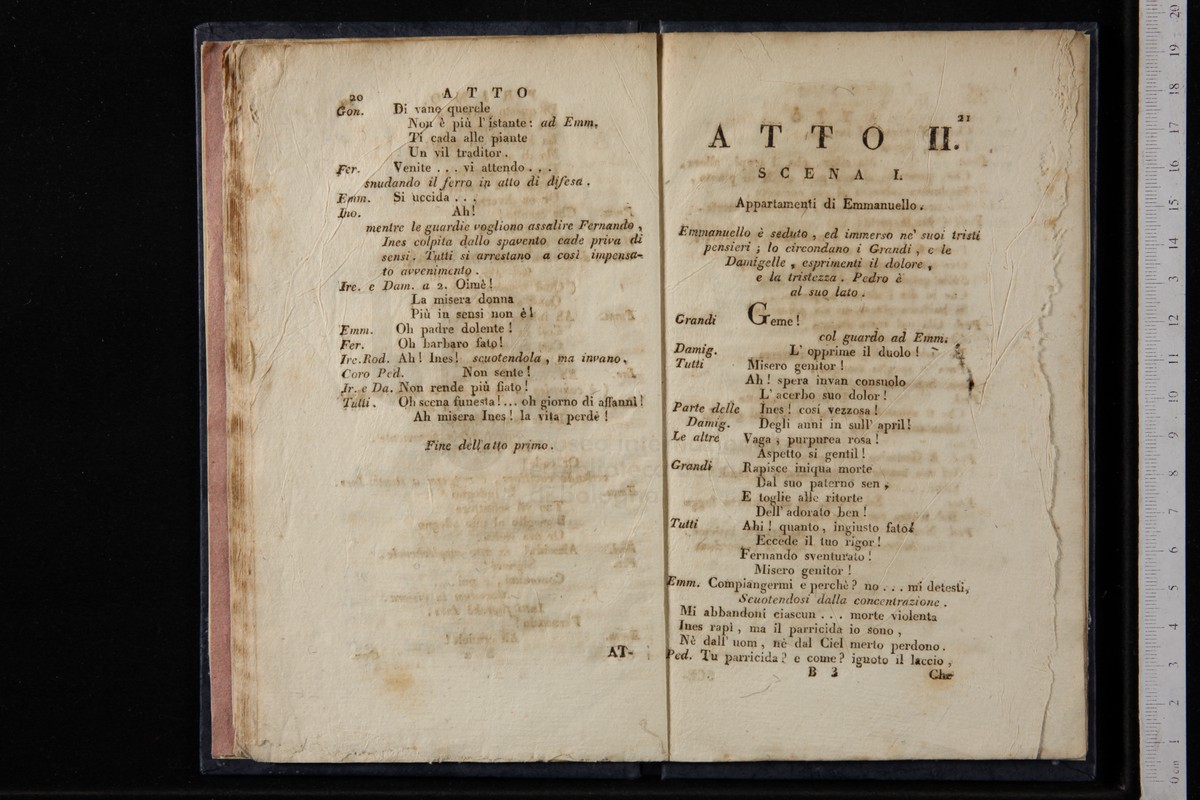 20
A T T O
Gon. Di vano querele
Non è più l'istante: ad Emm.
Ti cada alle piante
Un vil traditor.
Fer. Venite . . . vi attendo . . .
snudando il ferro in atto di difesa.
Emm. Si uccida . . .
Ino. Ah!
mentre le guardie vogliono assalire Fernando,
Ines colpita dallo spavento cade priva di
sensi. Tutti si arrestano a così impensa-
to avvenimento.
Ire. e Dam. a 2. Oimè!
La misera donna
Più in sensi non è!
Emm. Oh padre dolente!
Fer. Oh barbaro fato!
Ire.Rod. Ah! Ines! scuotendola, ma invano.
Coro Ped. Non sente!
Ir. e Da. Non rende più fiato!
Tutti. Oh scena funesta!... oh giorno di affanni!
Ah misera Ines! la vita perdè!
Fine dell'atto primo.
AT-
21
A T T O II.
S C E N A I.
Appartamenti di Emmanuello.
Emmanuello è seduto, ed immerso ne' suoi tristi
pensieri; lo circondano i Grandi, e le
Damigelle, esprimenti il dolore,
e la tristezza. Pedro è
al suo lato.
Grandi Geme!
col guardo ad Emm.
Damig. L'opprime il duolo!
Tutti Misero genitor!
Ah! spera invan consuolo
L'acerbo suo dolor!
Parte delle Ines! così vezzosa!
Damig. Degli anni in sull'april!
Le altre Vaga, purpurea rosa!
Aspetto si gentil!
Grandi Rapisce iniqua morte
Dal suo paterno sen,
E toglie alle ritorte
Dell'adorato ben!
Tutti Ahi! quanto, ingiusto fato!
Eccede il tuo rigor!
Fernando sventurato!
Misero genitor!
Emm. Compiangermi e perchè? no . . . mi detesti,
Scuotendosi dalla concentrazione.
Mi abbandoni ciascun . . . morte violenta
Ines rapì, ma il parricida io sono,
Nè dall'uom, nè dal Ciel merto perdono.
Ped. Tu parricida? e come? ignoto il laccio,
B 3
Che